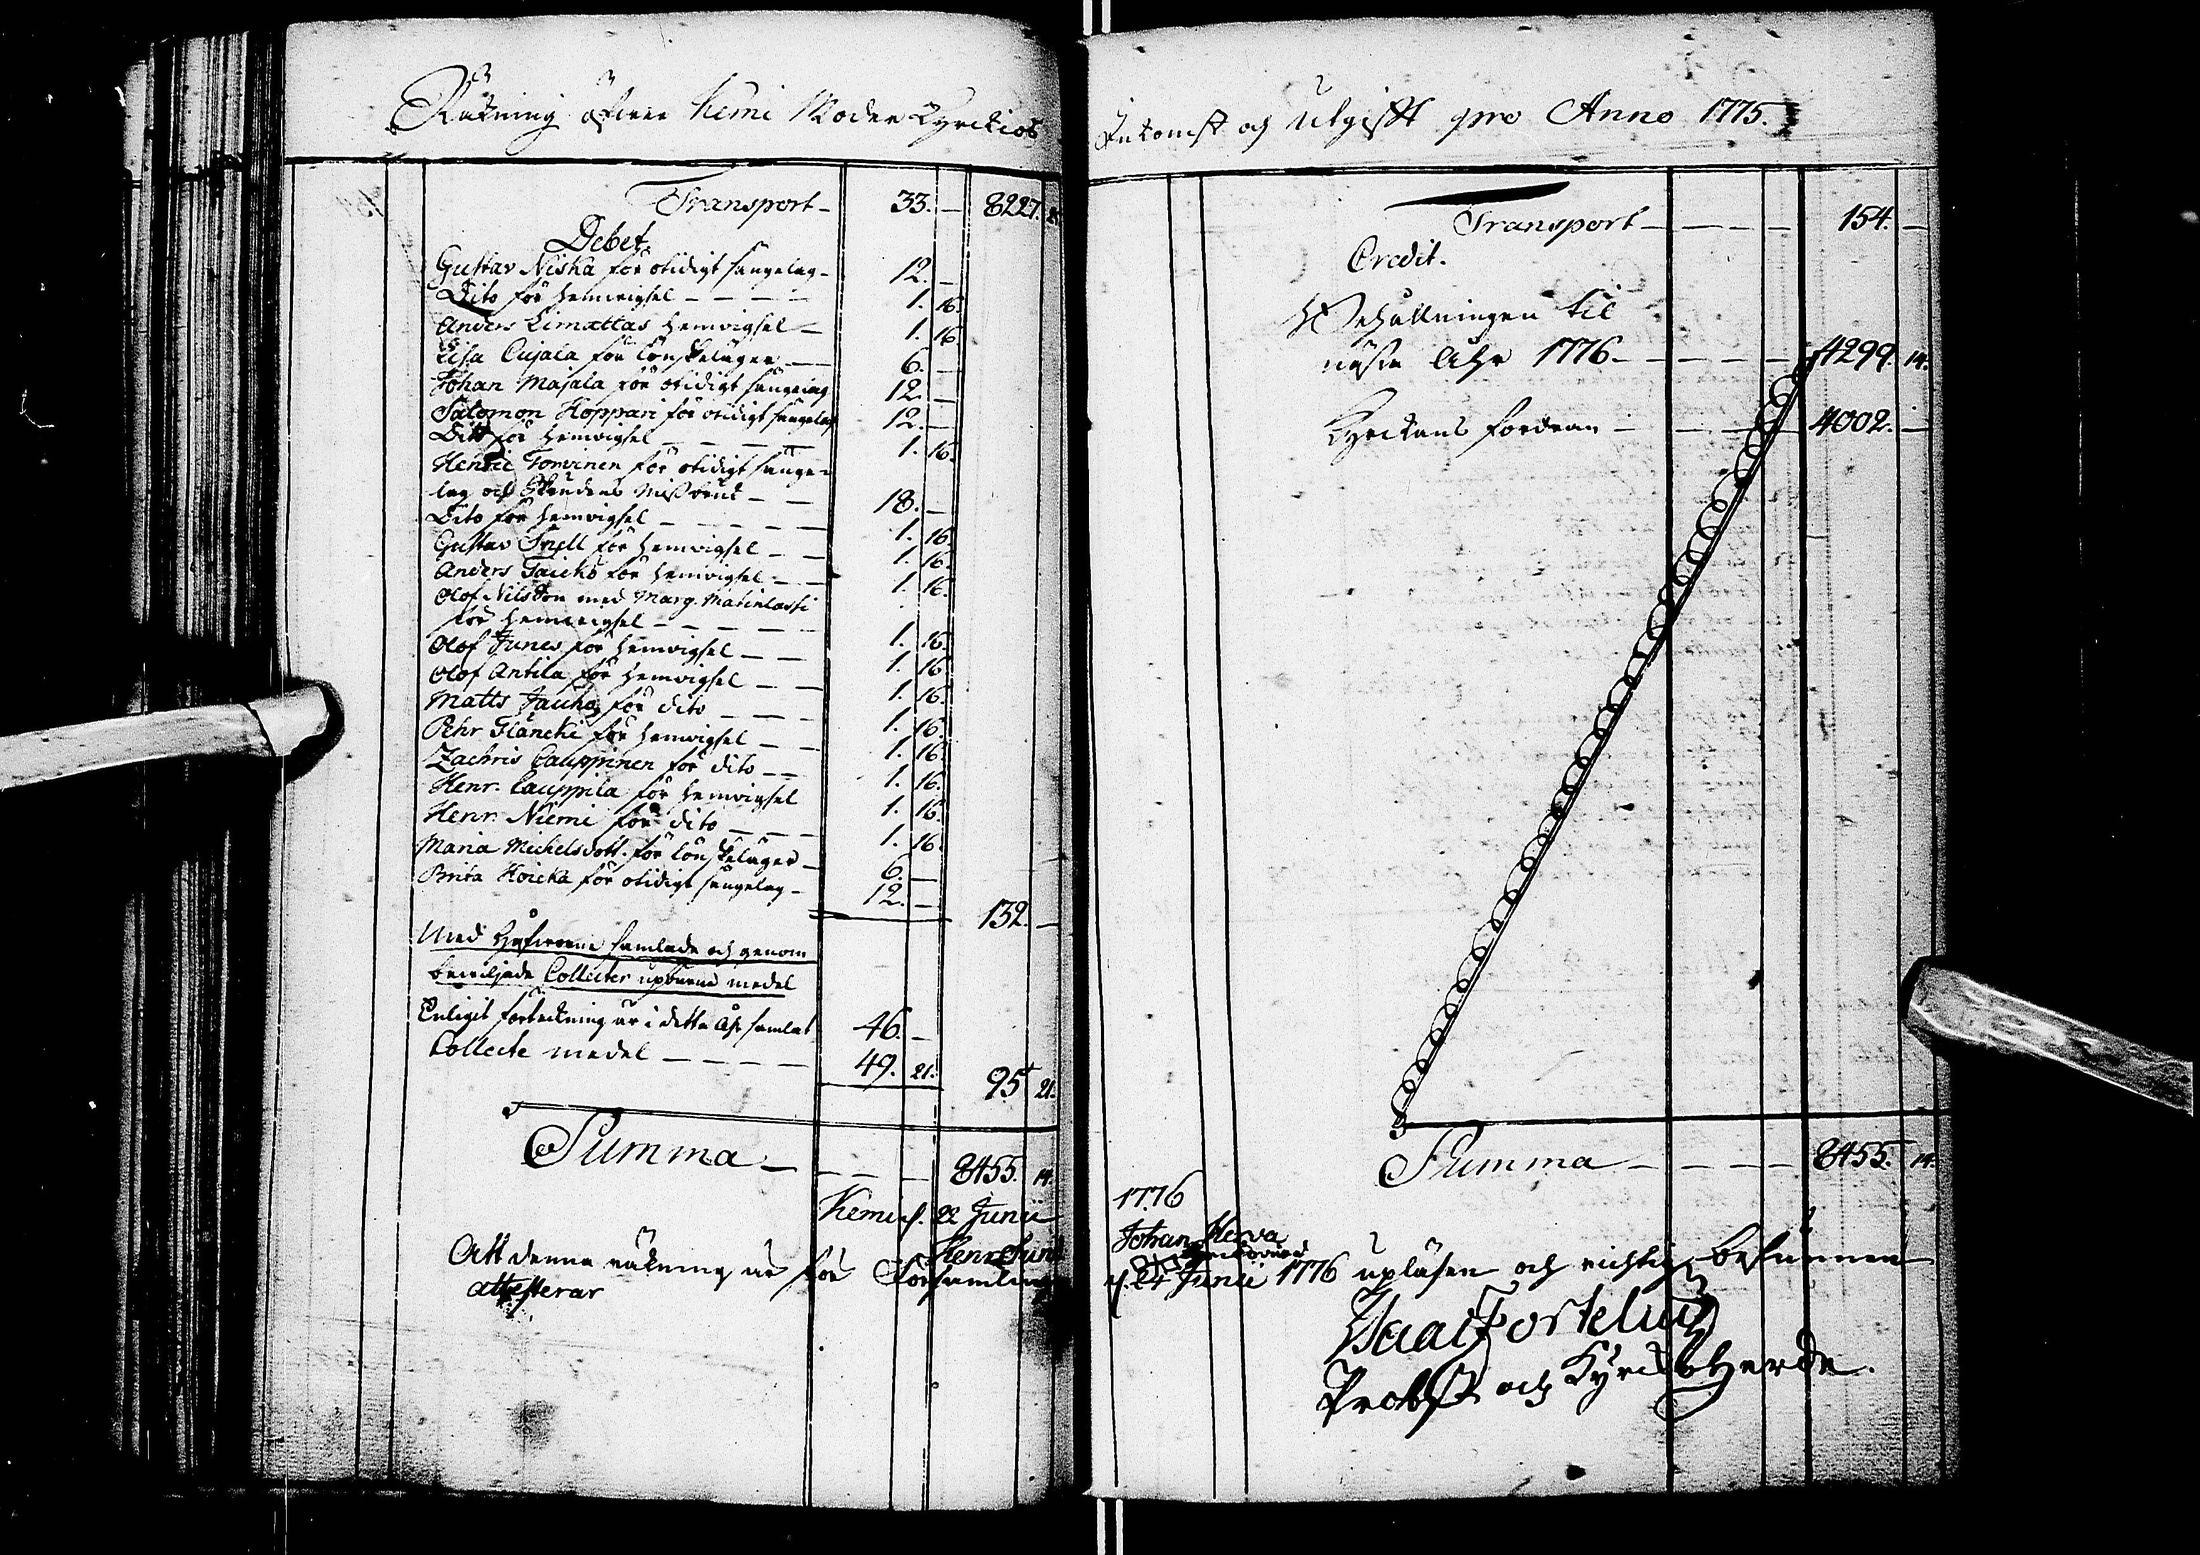 Räkning öfwer Kemi Moder Kyrckios
Transport 33. — 8227.
Debet.
Gustav Niska för otidigt sängelag — 12. —
Dito för hemvigsel — 1. 16.
Anders Limattas hemvigsel — 1. 16
Lisa Cujala för Lönskeläger — 6. —
Johan Majala för otidigt sängelag 12. —
Salomon Hoppari för otidigt sängelag 12. —
Dito för hemvigsel — 1. 16.
Henric Torvinen för otidigt sänge-
lag och Brudens Missbruk — 18. —
Dito för hemvigsel — 1. 16.
Gustav Snell för hemvigsel — 1. 16.
Anders Taicko för hemvigsel — 1. 16.
Olof Nilsson med Marg. Matinlassi
för hemvigsel — 1. 16.
Olof Junes för hemvigsel — 1. 16
Olof Antila för hemvigsel — 1. 16.
Matts Jauho för dito — 1. 16.
Pehr Fläncki för hemvigsel — 1. 16.
Zachris Cauppinen för dito — 1. 16.
Henr. Cauppila för hemvigsel 1. 16.
Henr. Niemi för dito — 1. 16.
Maria Michelsdott. för Lönskeläger — 6. —
Brita Hoicka för otidigt sängelag — 12. —
132. —
Med Håfwarne samlade och genom
bewiljade Collecter upburne medel
Enligit förteckning är i detta åhr samlat 46. —
Collecte medel — 49. 21. 95 21.
Summa — 8455. 14.
Kemi d. 22 Junii
Henr.
Att denna räkning är för Församling
attesterar
Inkomst och Utgifft pro Anno 1775.
Transport — 154. —
Credit.
Behållningen til
nästa Åhr 1776 — 4299. 14.
Kyrckans fordran — 4002. —
Summa — 8455. 14.
1776
Johan Herva
d. 24 Junii 1776 upläsen och richtig befunnen
Isaac Fortelius
Probst och Kyrckoherde.